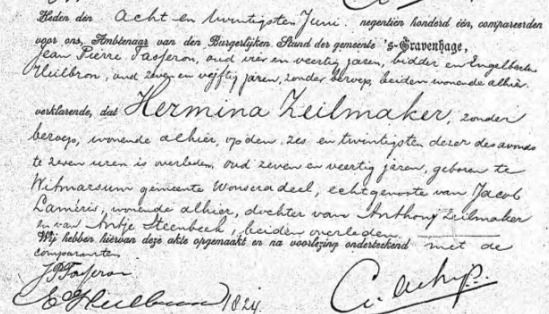 Heden den Acht en twintigsten Juni negentien honderd één, compareerden
voor ons, Ambtenaar van den Burgerlijken Stand der gemeente 's-Gravenhage,
Jean Pierre Tasseron, oud vier en veertig jaren, bidder en Engelbertus
Heilbron, oud zeven en vijftig jaren, zonder beroep, beiden wonende alhier
verklarende, dat Hermina Zeilmaker, zonder
beroep, wonende alhier, op den zes en twintigsten dezer des avonds
te zeven uren is overleden, oud zeven en veertig jaren, geboren te
Witmarsum gemeente Wonseradeel, echtgenoote van Jacob
Laméris, wonende alhier, dochter van Anthony Zeilmaker
en van Antje Steenbeek, beiden overleden.
Wij hebben hiervan deze akte opgemaakt en na voorlezing onderteekend met de
comparanten.
JPTasseron
Heilbron 1824.